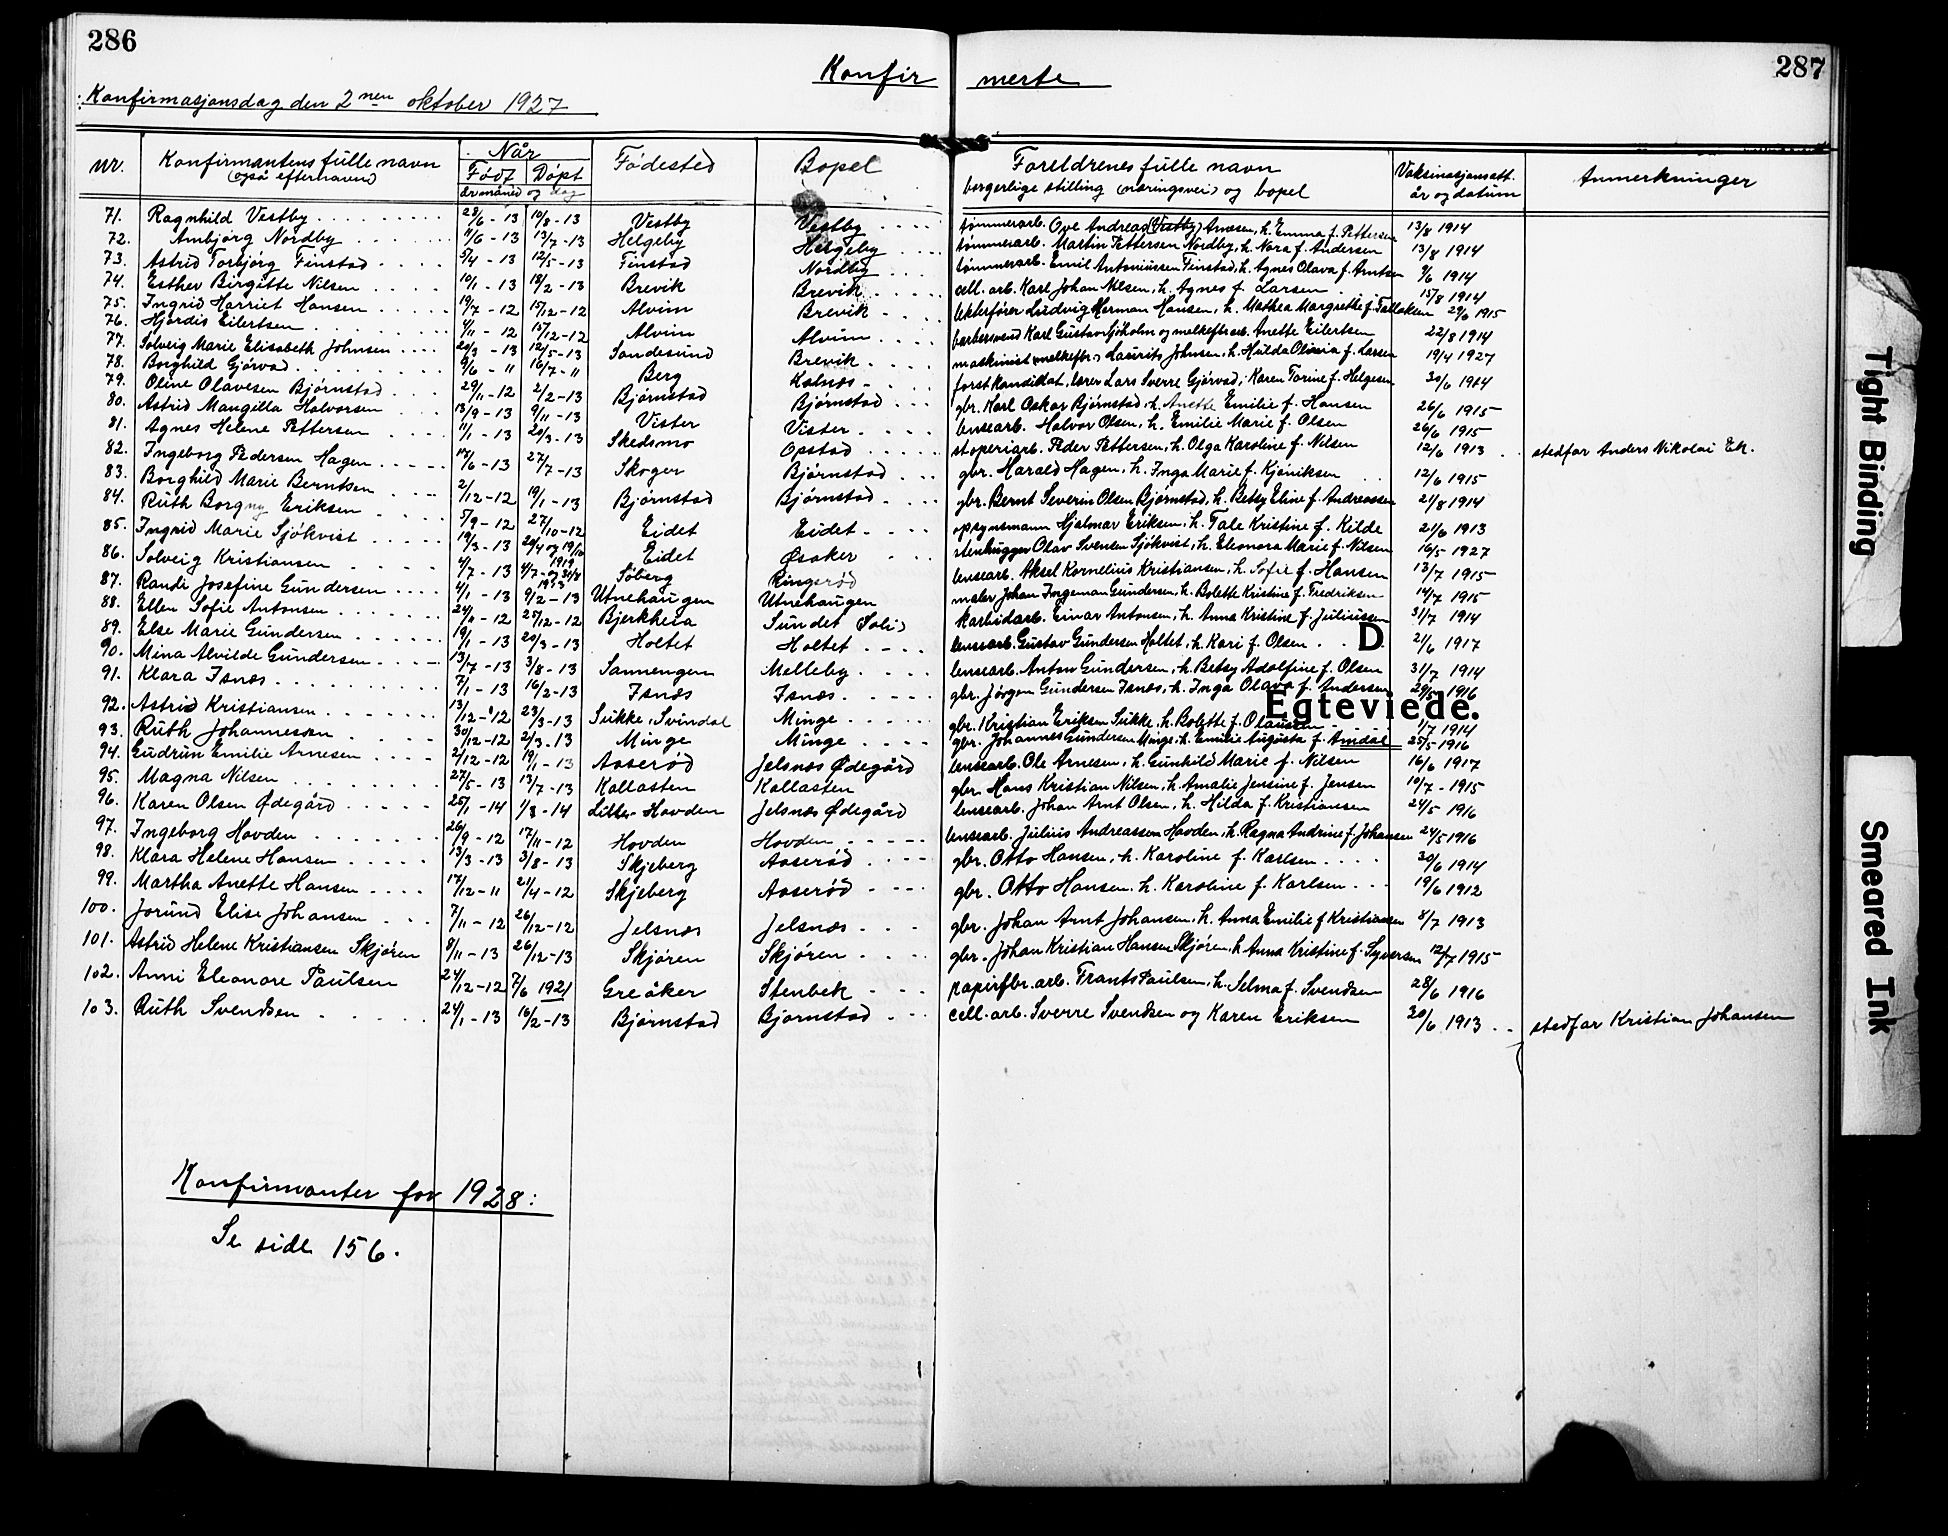 286
287
Konfir merte
Konfirmasjonsdag den 2nen oktober 1927
nr. Konfirmantens fulle navn (også efternavn) Når Født Døpt år måned og dag Fødested Bopel Foreldrenes fulle navn borgerlige stilling (næringsvei) og bopel Vaksinasjonsatt. år og datum Anmerkninger
71. Ragnhild Vestby 28/6-13 10/8-13 Vestby Vestby tømmerarb. Ove Andreas (Vestby) Arnesen, h. Emma f. Pettersen 13/8 1914
72. Ambjørg Nordby 11/6-13 13/7-13 Helgeby Helgeby tømmerarb. Martin Pettersen Nordby, h. Nora f. Andersen 13/8 1914
73. Astrid Torbjørg Finstad 5/4-13 12/5-13 Finstad Nordby tømmerarb. Emil Antoniussen Finstad, h. Agnes Olava f. Arntsen 9/6 1914
74. Esther Birgitte Nilsen 10/1-13 18/2-13 Brevik Brevik cell. arb. Karl Johan Nilsen, h. Agnes f. Larsen 15/8 1914
75. Ingrid Harriet Hansen 19/7-12 15/12-12 Alvim Brevik lekterfører Ludvig Herman Hansen, h. Mathea Margrethe f. Tallaksen 29/6 1915
76. Hjørdis Eilertsen 4/11-12 15/12-12 Alvim Alvim barbersvend Karl Gustav Sjøholm og melkeftr.arb. Anette Eilertsen 22/8 1914
77. Solveig Marie Elisabeth Johnsen 20/3-13 12/5-13 Sandesund Brevik maskinist (melkeftr.) Laurits Johnsen, h. Hulda Olivia f. Larsen 19/4 1927
78. Borghild Gjørvad 9/6-11 16/7-11 Berg Kalnæs forstkandidat, lærer Lars Sverre Gjørvad, Karen Torine f. Helgesen 30/6 1914
79. Oline Olavesen Bjørnstad 29/11-12 2/2-13 Bjørnstad Bjørnstad gbr. Karl Oskar Bjørnstad, h. Anette Emilie f. Hansen 26/6 1915
80. Astrid Mangilla Halvorsen 13/9-13 9/11-13 Vister Vister lensearb. Halvor Olsen, h. Emilie Marie f. Olsen 26/6 1915
81. Agnes Helene Pettersen 11/1-13 24/3-13 Skedsmo Opstad støperiarb. Peder Pettersen, h. Olga Karoline f. Nilsen 12/6 1913 stedfar Anders Nikolai Ek.
82. Ingeborg Pedersen Hagen 17/6-13 27/7-13 Skoger Bjørnstad gbr. Harald Hagen, h. Inga Marie f. Kjøniksen 12/6 1915
83. Borghild Marie Berntsen 2/12-12 19/1-13 Bjørnstad Bjørnstad gbr. Bernt Severin Olsen Bjørnstad, h. Betsy Eline f. Andreassen 21/8 1914
84. Ruth Borgny Eriksen 5/9-12 27/10-12 Eidet Eidet opsynsmann Hjalmar Eriksen, h. Tale Kristine f. Kilde 21/6 1913
85. Ingrid Marie Sjökvist 19/3-13 20/4 og 19/10 1919 Eidet Øsaker stenhugger Olav Svensen Sjökvist, h. Eleonora Marie f. Nilsen 16/5 1927
86. Solveig Kristiansen 4/7-13 Søberg Ringsrød lensearb. Aksel Kornelius Kristiansen, h. Sofie f. Hansen 13/7 1915
87. Randi Josefine Gundersen 4/1-13 9/2-13 Utnehaugen Utnehaugen maler Johan Ingeman Gundersen, h. Bolette Kristine f. Fredriksen 14/7 1915
88. Ellen Sofie Antonsen 24/11-12 25/12-12 Bjerkheia Sundet (Soli) karbidarb. Einar Antonsen, h. Anna Kristine f. Juliussen 31/7 1914
89. Else Marie Gundersen 19/1-13 24/3-13 Holtet Holtet lensearb. Gustav Gundersen Holtet, h. Kari f. Olsen D. 21/6 1917
90. Mina Alvilde Gundersen 13/7-13 3/8-13 Sannengen Melleby lensearb. Anton Gundersen, h. Betsy Adolfine f. Olsen 31/7 1914
91. Klara Isnæs 7/1-13 16/2-13 Isnæs Isnæs gbr. Jørgen Gundersen Isnæs, h. Inga Olava f. Andersen 29/5 1916
Egteviede.
92. Astrid Kristiansen 13/12-12 23/3-13 Sukke, Svindal Minge gbr. Kristian Eriksen Sukke, h. Bolette f. Olaussen 1/7 1914
93. Ruth Johannessen 30/12-12 2/3-13 Minge Minge gbr. Johannes Gundersen Minge, h. Emilie Augusta f. Amdal 25/5 1916
94. Gudrun Emilie Arnesen 2/12-12 19/1-13 Aaserød Jelsnæs Ødegård lensearb. Ole Arnesen, h. Gunhild Marie f. Nilsen 16/6 1917
95. Magna Nilsen 27/5-13 13/7-13 Kallasten Kallasten gbr. Hans Kristian Nilsen, h. Amalie Jensine f. Jensen 10/7-1915
96. Karen Olsen Ødegård 25/1-14 1/3-14 Litter Hovden Jelsnæs Ødegård lensearb. Johan Arnt Olsen, h. Hilda f. Kristiansen 24/5 1916
97. Ingeborg Hovden 26/9-12 17/11-12 Hovden Hovden lensearb. Julius Andreassen Hovden, h. Ragna Andrine f. Johansen 24/5 1916
98. Klara Helene Hansen 13/3-13 3/8-13 Skjeberg Aaserød gbr. Otto Hansen, h. Karoline f. Karlsen 30/6 1914
99. Martha Anette Hansen 17/12-11 21/4-12 Skjeberg Aaserød gbr. Otto Hansen, h. Karoline f. Karlsen 19/6 1912
100. Jorund Elise Johansen 7/11-12 26/12-12 Jelsnæs Jelsnæs gbr. Johan Arnt Johansen, h. Anna Emilie f. Kristiansen 8/7 1913
101. Astrid Helene Kristiansen Skjøren 8/11-13 26/12-13 Skjøren Skjøren gbr. Johan Kristian Hansen Skjøren, h. Anna Kristine f. Syversen 12/7 1915
102. Anni Eleonore Paulsen 24/12-12 7/6 1921 Greåker Stenbek papirfbr. arb. Frants Paulsen, h. Selma f. Svendsen 28/6 1916
103. Ruth Svendsen 24/1-13 16/2-13 Bjørnstad Bjørnstad cell. arb. Sverre Svendsen og Karen Eriksen 30/6 1913 stedfar Kristian Johansen
Konfirmanter for 1928:
Se side 156.
Tight Binding
Smeared Ink